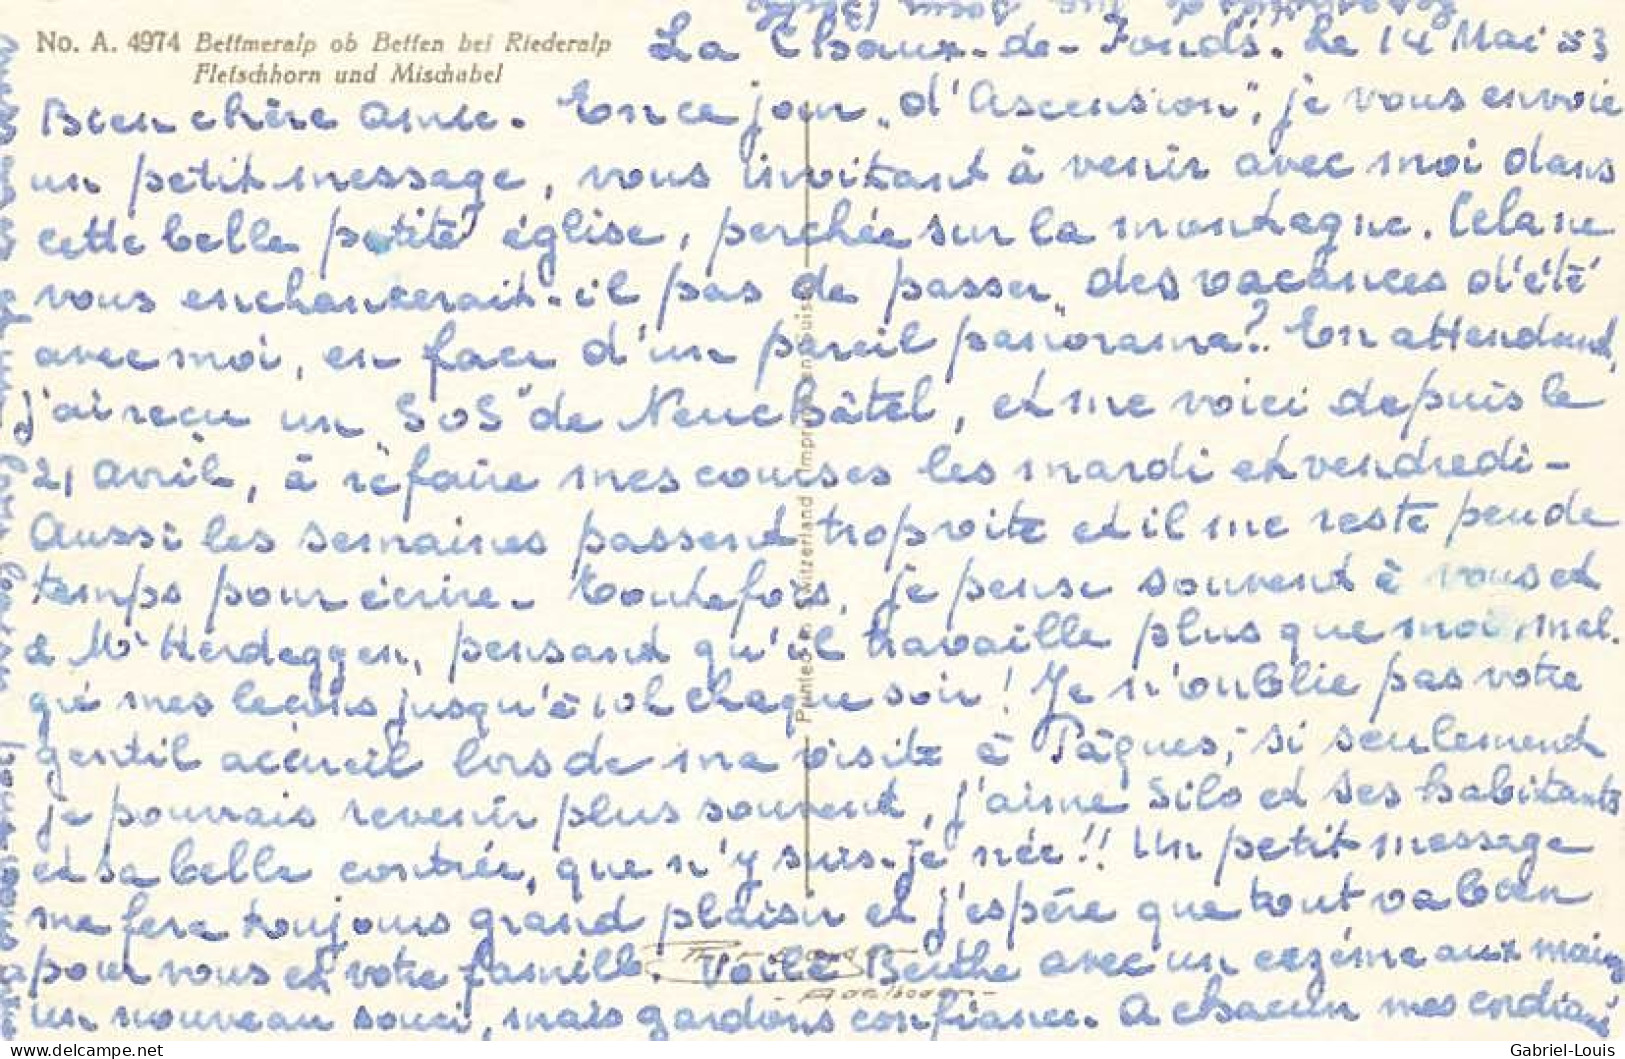 No. A. 4974 Bettmeralp ob Betten bei Riederalp
Fletschhorn und Mischabel
La Chaux-de-Fonds. Le 14 Mai 53
Bien chère amie. En ce jour "d'Ascension", je vous envoie
un petit message, vous invitant à venir avec moi dans
cette belle petite église, perchée sur la montagne. Cela ne
vous enchanterait-il pas de passer "des vacances d'été"
avec moi, en face d'un pareil panorama? En attendant,
j'ai reçu un "SoS" de Neuchâtel, et me voici depuis le
21 avril, à refaire mes courses les mardi et vendredi-
Aussi les semaines passent trop vite et il me reste peu de
temps pour écrire. Toutefois, je pense souvent à vous et
à Mr Herdeggen, pensant qu'il travaille plus que moi, mal-
gré mes leçons jusqu'à 10h chaque soir! Je n'oublie pas votre
gentil accueil lors de ma visite à Pâques, si seulement
je pouvais revenir plus souvent, j'aime Silo et ses habitants
et sa belle contrée, que n'y suis-je née!! Un petit message
me fera toujours grand plaisir et j'espère que tout va bien
pour vous et votre famille. Voilà Berthe avec un eczéme aux mains
un nouveau souci, mais gardons confiance. A chacun mes cordiaux
Printed in Switzerland Imprimé en Suisse
Adelboden
Gabriel-Louis